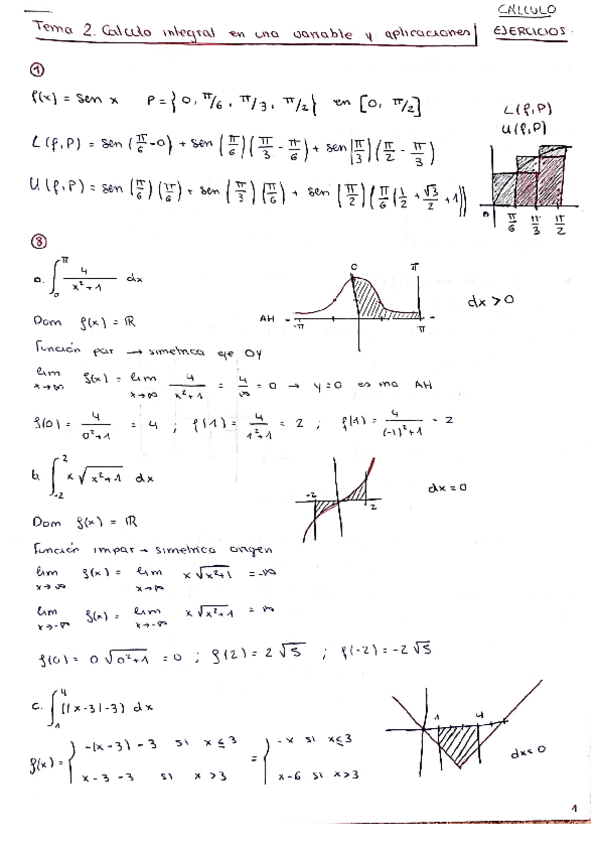 CÁLCULO
Tema 2. Calculo integral en una variable y aplicaciones
EJERCICIOS.
①
f(x) = sen x P = { 0, π/6, π/3, π/2 } en [0, π/2]
L(f,P)
U(f,P)
L(f,P) = sen (π/6 - 0) + sen (π/6)(π/3 - π/6) + sen (π/3)(π/2 - π/3)
U(f,P) = sen (π/6)(π/6) + sen (π/3)(π/6) + sen (π/2)(π/6(1/2 + √3/2 + 1))
0 π/6 π/3 π/2
⑧
a. ∫₀^π 4/(x²+1) dx
0 π
dx > 0
AH -π π
Dom f(x) = ℝ
Función par → simetrica eje OY
lim x→∞ f(x) = lim x→∞ 4/(x²+1) = 4/∞ = 0 → y=0 es una AH
f(0) = 4/(0²+1) = 4 ; f(1) = 4/(1²+1) = 2 ; f(1) = 4/((-1)²+1) = 2
b. ∫₋₂² x √(x²+1) dx
-2 2
dx = 0
Dom f(x) = ℝ
Función impar → simetrica origen
lim x→∞ f(x) = lim x→∞ x √(x²+1) = -∞
lim x→-∞ f(x) = lim x→-∞ x √(x²+1) = ∞
f(0) = 0 √(0²+1) = 0 ; f(2) = 2√5 ; f(-2) = -2√5
c. ∫₁⁴ (|x-3|-3) dx
1 4
dx < 0
f(x) = { -(x-3) - 3 si x ≤ 3 = { -x si x ≤ 3
x - 3 - 3 si x > 3 x-6 si x > 3
1